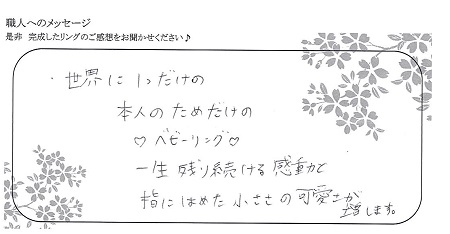 職人へのメッセージ
是非 完成したリングのご感想をお聞かせください♪
・世界に1つだけの
本人のためだけの
♡ベビーリング♡
一生残り続ける感動と
指にはめた小ささの可愛さが
増します。